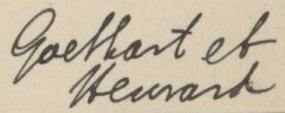 Goethart et
Henrard